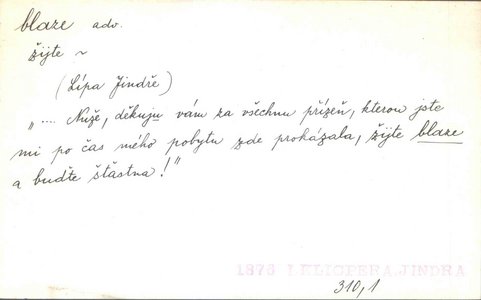 blaze adv.
žijte ~
(Lípa Jindře)
„.... Nuže, děkuju vám za všechnu přízeň, kterou jste
mi po čas mého pobytu zde prokázala, žijte blaze
a buďte šťastna!"
1876 LELIOPERA,JINDRA
310,1